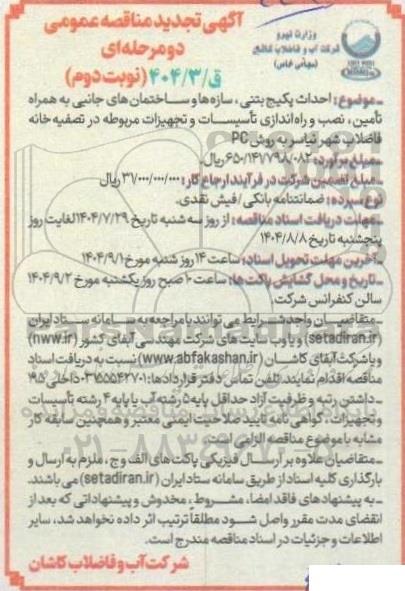 وزارت نیرو
شرکت آب و فاضلاب کاشان
(سهامی خاص)
آگهی تجدید مناقصه عمومی
دو مرحله‌ای
ق/۴۰۴/۳ (نوبت دوم)
ـ موضوع: احداث پکیج بتنی، سازه‌ها و ساختمان‌های جانبی به همراه
تامین، نصب و راه‌اندازی تأسیسات و تجهیزات مربوطه در تصفیه خانه
فاضلاب شهر نیاسر به روش PC
ـ مبلغ برآورد: ۶۵۰/۱۴۷۷۹۸/۰۸۲ ریال.
ـ مبلغ تضمین شرکت در فرآیند ارجاع کار: ۳۱/۰۰۰/۰۰۰/۰۰۰ ریال
نوع سپرده: ضمانتنامه بانکی/فیش نقدی.
ـ مهلت دریافت اسناد مناقصه: از روز سه شنبه تاریخ ۱۴۰۴/۷/۲۹ لغایت روز
پنجشنبه تاریخ ۱۴۰۴/۸/۸
ـ آخرین مهلت تحویل اسناد: ساعت ۱۴ روز شنبه مورخ ۱۴۰۴/۹/۱
ـ تاریخ و محل گشایش پاکت‌ها: ساعت ۱۰ صبح روز یکشنبه مورخ ۱۴۰۴/۹/۲
سالن کنفرانس شرکت.
ـ متقاضیان واجد شرایط می توانند با مراجعه به سامانه ستاد ایران
(setadiran.ir) و یا وب سایت‌های شرکت مهندسی آبفای کشور (nww.ir)
و یا شرکت آبفای کاشان (www.abfakashan.ir) نسبت به دریافت اسناد
مناقصه اقدام نمایند. تلفن تماس دفتر قراردادها: ۱-۳۷۵۵۵۴۲۷۰ داخلی ۴۱۵
ـ داشتن رتبه و ظرفیت آزاد حداقل پایه ۵ رشته آب یا پایه ۴ رشته تأسیسات
و تجهیزات، گواهی نامه تایید صلاحیت ایمنی معتبر و همچنین سابقه کار
مشابه با موضوع مناقصه الزامی است.
ـ متقاضیان علاوه بر ارسال فیزیکی پاکت‌های الف و ج، ملزم به ارسال و
بارگذاری کلیه اسناد از طریق سامانه ستاد ایران (setadiran.ir) می باشند.
ـ به پیشنهادهای فاقد امضا، مشروط، مخدوش و پیشنهاداتی که بعد از
انقضای مدت مقرر واصل شود مطلقاً ترتیب اثر داده نخواهد شد، سایر
اطلاعات و جزئیات در اسناد مناقصه مندرج است.
شرکت آب و فاضلاب کاشان